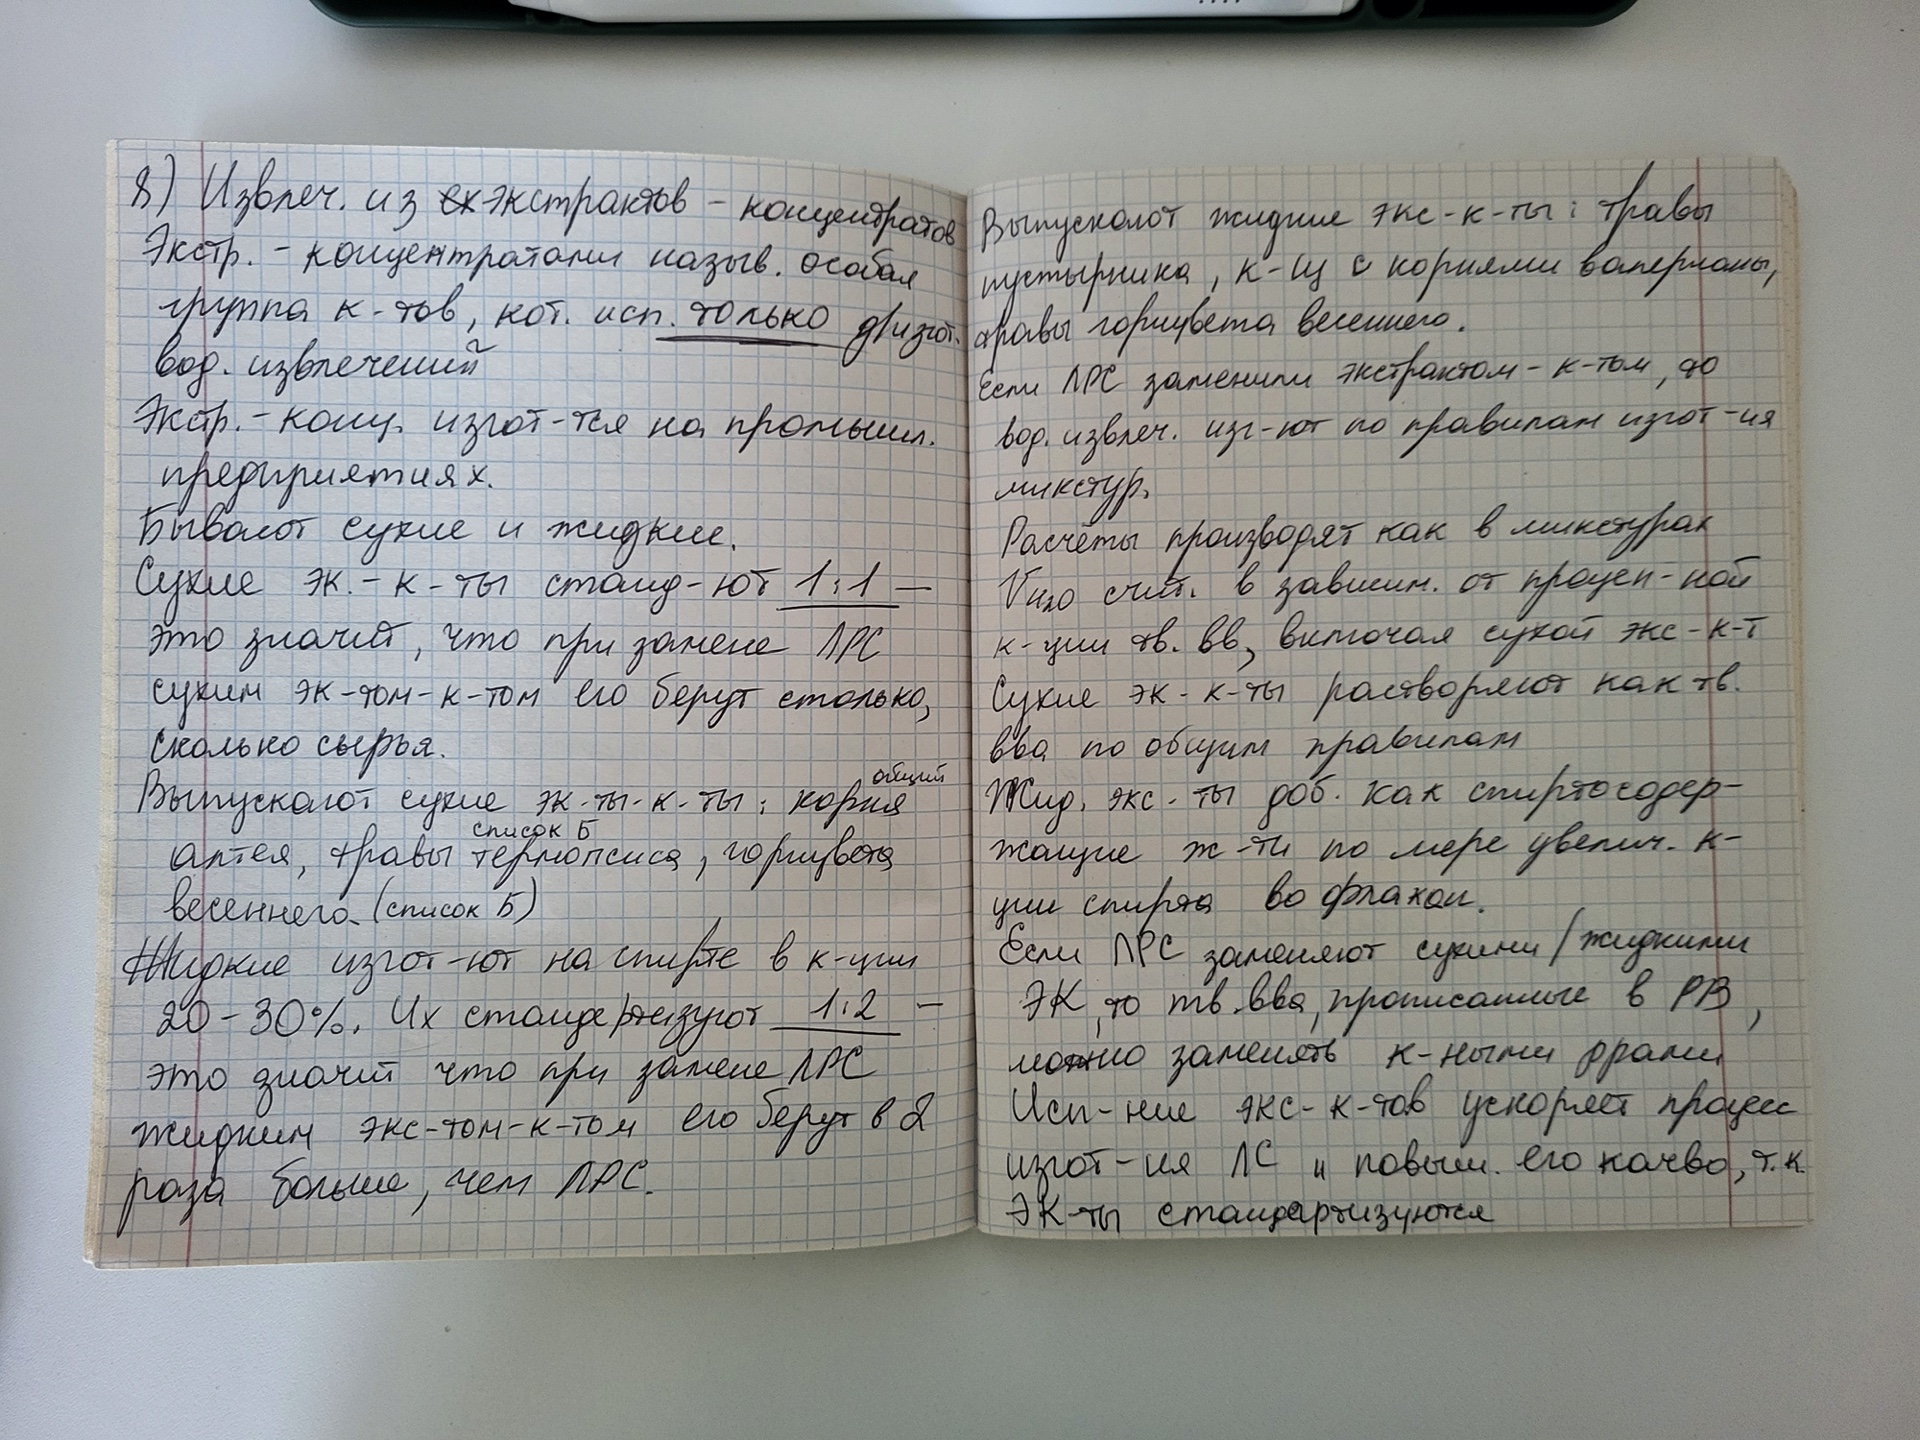 8) Извлеч. из экстрактов - концентратов
Экстр. - концентратами назыв. особая
группа к-тов, кот. исп. только д/изгот.
вод. извлечений
Экстр. - конц. изгот-тся на промышл.
предприятиях.
Бывают сухие и жидкие.
Сухие эк.-к-ты станд-ют 1:1 -
это значит, что при замене ЛРС
сухим эк-том-к-том его берут столько,
сколько сырья.
общий
Выпускают сухие эк-ты-к-ты: корня
список Б
алтея, травы термопсиса, горицвета
весеннего. (список Б)
Жидкие изгот-ют на спирте в к-ции
20-30%. Их стандартизуют 1:2 -
это значит что при замене ЛРС
жидким экс-том-к-том его берут в 2
раза больше, чем ЛРС.
Выпускают жидкие экс-к-ты: травы
пустырника, к-щ с корнями валерианы,
травы горицвета весеннего.
Если ЛРС заменили экстрактом-к-том, то
вод. извлеч. изг-ют по правилам изгот-ия
микстур.
Расчёты производят как в микстурах
Vн2о счит. в зависим. от процен-ной
к-ции тв. вв, включая сухой экс-к-т
Сухие эк-к-ты растворяют как тв.
вва по общим правилам
Жид. экс-ты доб. как спиртосодер-
жащие ж-ти по мере увелич. к-
ции спирта во флакон.
Если ЛРС заменяют сухими/жидкими
ЭК, то тв. вва, прописанные в РВ,
можно заменять к-нымиррами
Исп-ние экс-к-тов ускоряет процесс
изгот-ия ЛС и повыш. его качво, т.к.
ЭК-ты стандартизуются